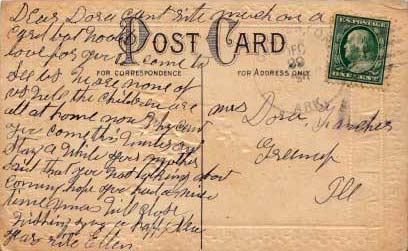 Dear Dora cant rite much on a
card but would
love for you to come to
see us we are none of
us well the children are
all at home now Why cant
you come this winter and
stay a while your mother
said that you was talking about
coming hope you had a nice
time Xmas Will close
wishing you a happy New
Year rite Ellen
POST CARD
FOR CORRESPONDENCE
FOR ADDRESS ONLY
U.S. POSTAGE
ONE CENT
DEC
29
ARK
Mrs
Dora
Greenup
Ill